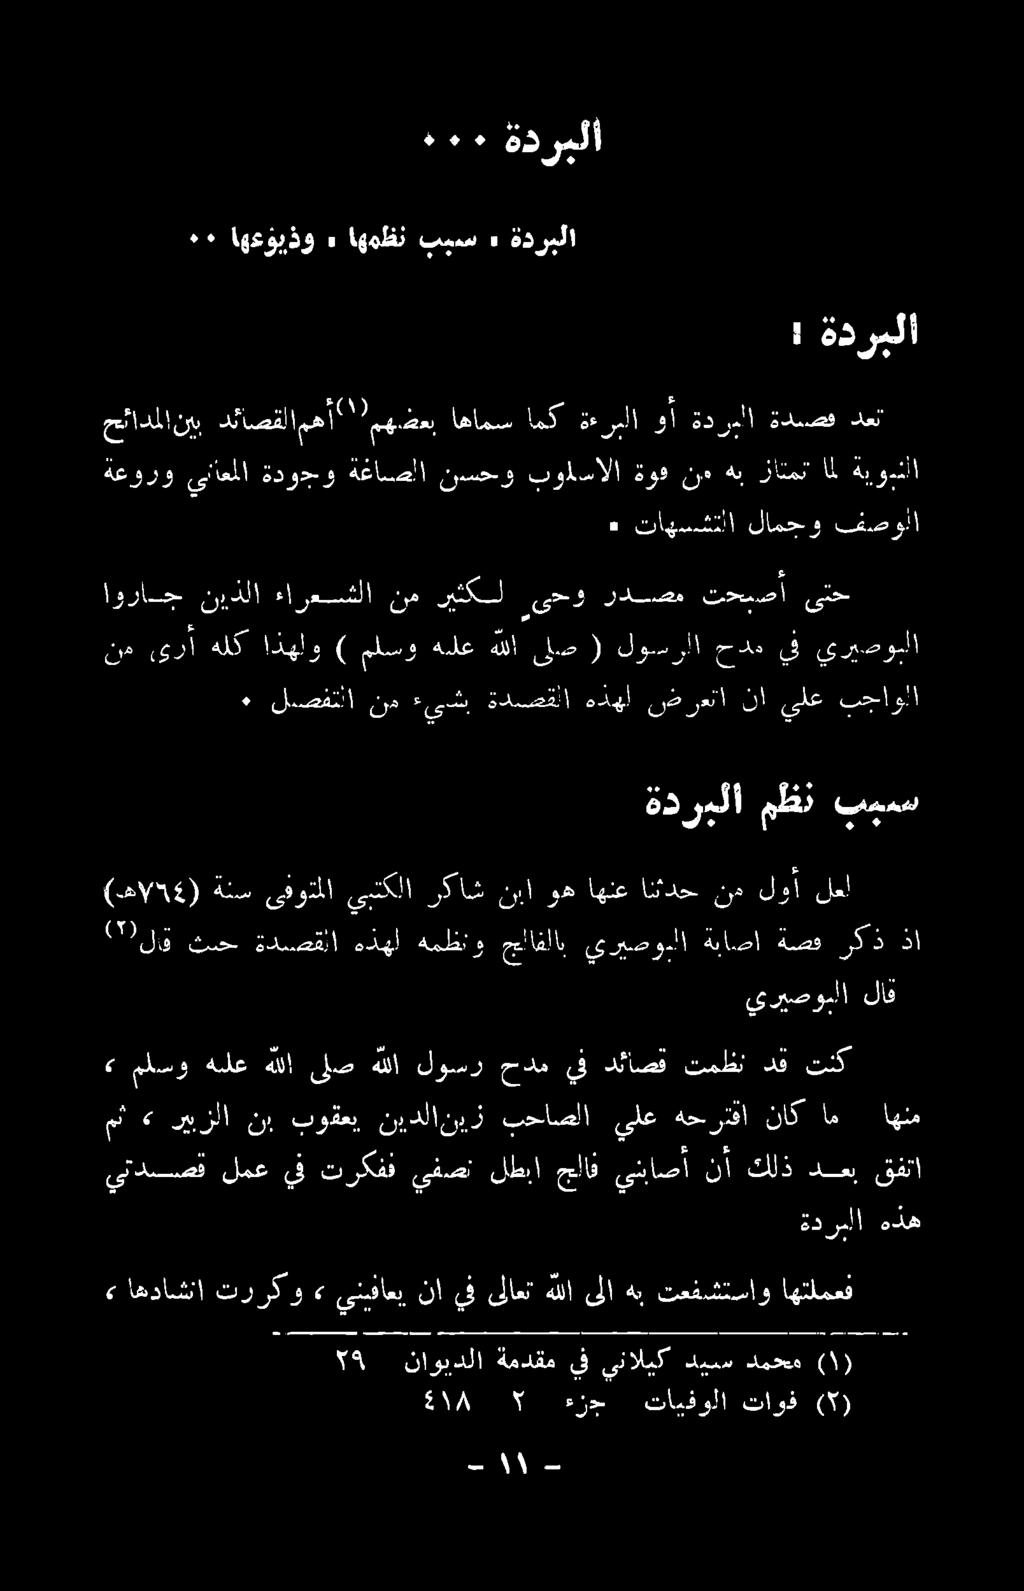 البردة ٠٠٠
البردة . سبب نظمها . وذيوعها ٠٠
البردة :
تعد قصيدة البردة أو البرءة كما سماها بعضهم(١) أهم القصائد بين المدائح
النبوية لما تمتاز به من قوة الاسلوب وحسن الصياغة وجودة المعاني وروعة
الوصف وجمال التشبيهات .
حتى أصبحت مصـدر وحي لـكثير من الشـعراء الذين جـاروا
البوصيري في مدح الرسول ( صلى الله عليه وسلم ) ولهذا كله أرى من
الواجب علي ان اتعرض لهذه القصيدة بشيء من التفصيل ٠
سبب نظم البردة
لعل أول من حدثنا عنها هو ابن شاكر الكتبي المتوفى سنة (٧٦٤هـ)
اذ ذكر قصة اصابة البوصيري بالفالج ونظمه لهذه القصيدة حيث قال(٢)
قال البوصيري
كنت قد نظمت قصائد في مدح رسول الله صلى الله عليه وسلم ،
منها ما كان اقترحه علي الصاحب زين الدين يعقوب بن الزبير ، ثم
اتفق بعـد ذلك أن أصابني فالج ابطل نصفي ففكرت في عمل قصيـدتي
هذه البردة
فعملتها واستشفعت به الى الله تعالى في ان يعافيني ، وكررت انشادها ،
(١) محمد سيد كيلاني في مقدمة الديوان ٢٩
(٢) فوات الوفيات جزء ٢ ٤١٨
- ١١ -